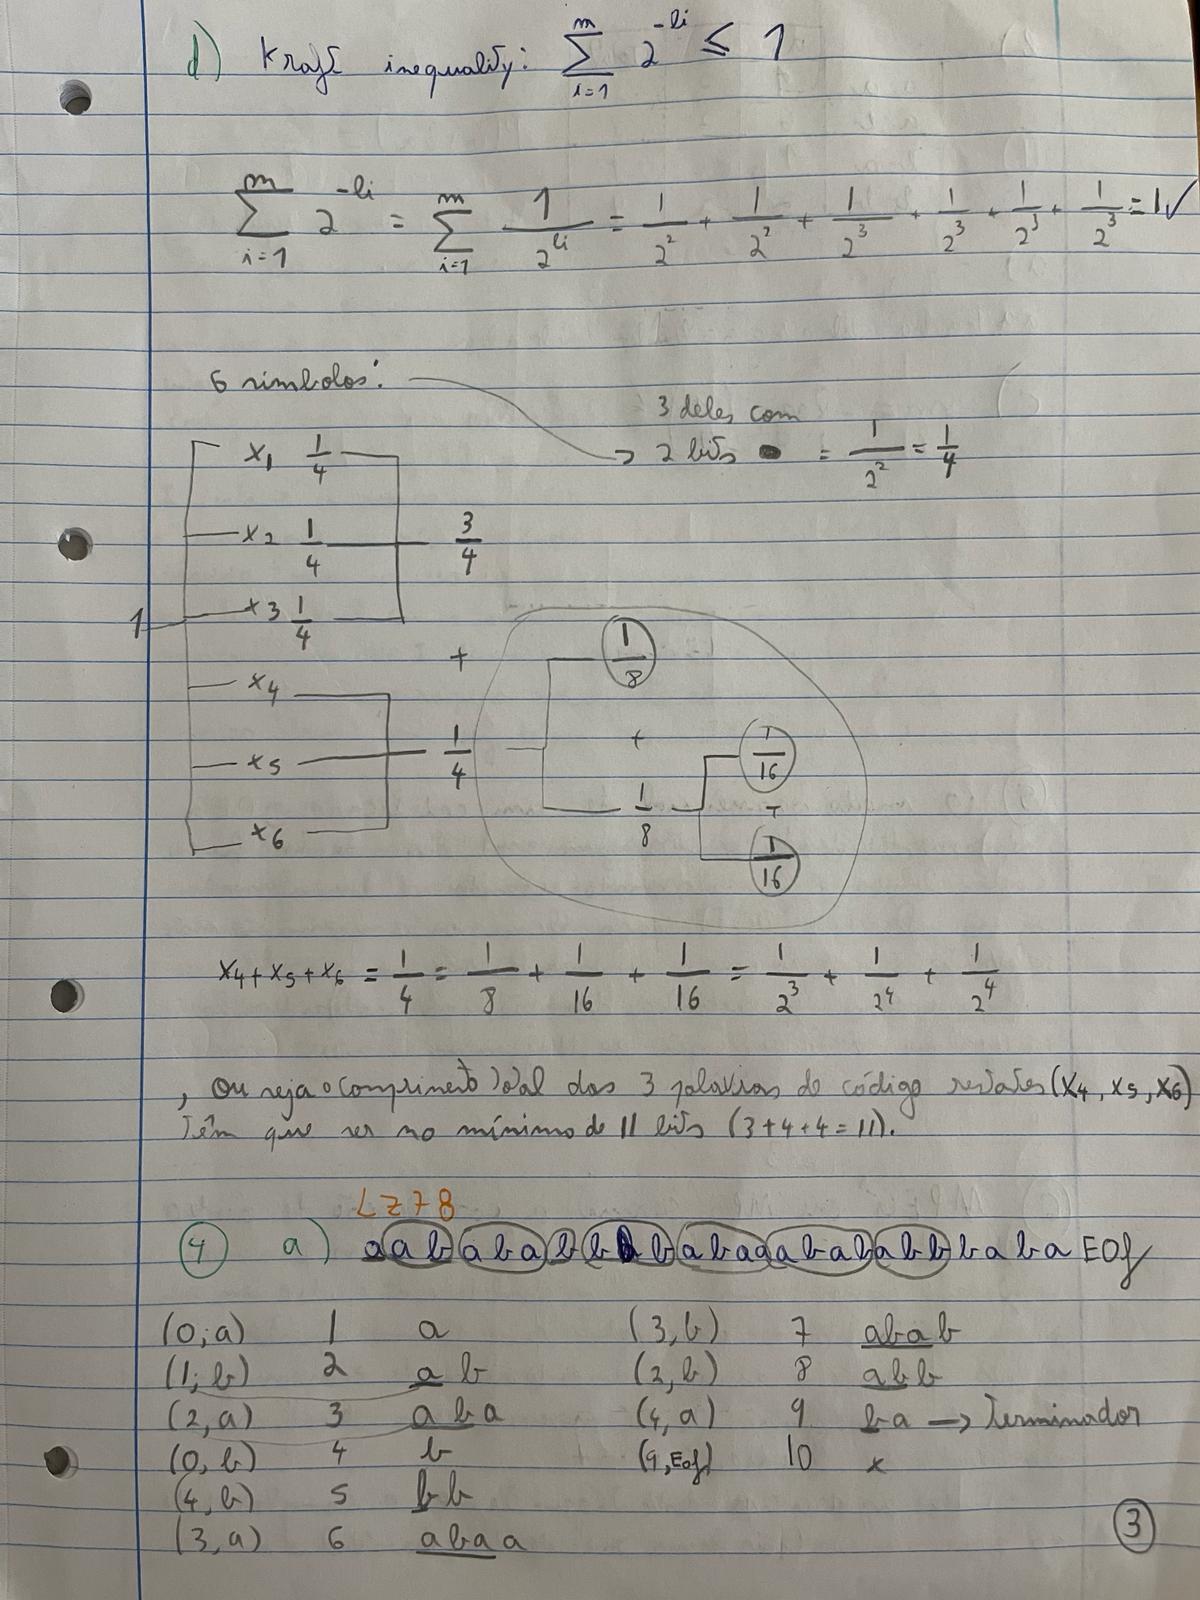 d) Kraft inequality: \sum_{i=1}^{m} 2^{-li} ≤ 1
\sum_{i=1}^{m} 2^{-li} = \sum_{i=1}^{m} \frac{1}{2^{li}} = \frac{1}{2^2} + \frac{1}{2^2} + \frac{1}{2^3} + \frac{1}{2^3} + \frac{1}{2^3} + \frac{1}{2^3} = 1 ✓
6 simbolos:
3 deles com
→ 2 bits = \frac{1}{2^2} = \frac{1}{4}
x_1 \frac{1}{4}
x_2 \frac{1}{4} \frac{3}{4}
1 x_3 \frac{1}{4}
+ \frac{1}{8}
x_4
x_5 \frac{1}{4} + \frac{1}{16}
\frac{1}{8} +
x_6 \frac{1}{16}
x_4 + x_5 + x_6 = \frac{1}{4} = \frac{1}{8} + \frac{1}{16} + \frac{1}{16} = \frac{1}{2^3} + \frac{1}{2^4} + \frac{1}{2^4}
, Ou seja o comprimento total das 3 palavras de código restates (x_4, x_5, x_6)
Têm que ser no mínimo de 11 bits (3+4+4=11).
LZ78
4 a) a ab aba b bb abaa abab abb baba EOf
(0,a) 1 a (3,b) 7 abab
(1,b) 2 ab (2,b) 8 abb
(2,a) 3 aba (4,a) 9 ba → Terminador
(0,b) 4 b (9,Eof) 10 x
(4,b) 5 bb
(3,a) 6 abaa
3